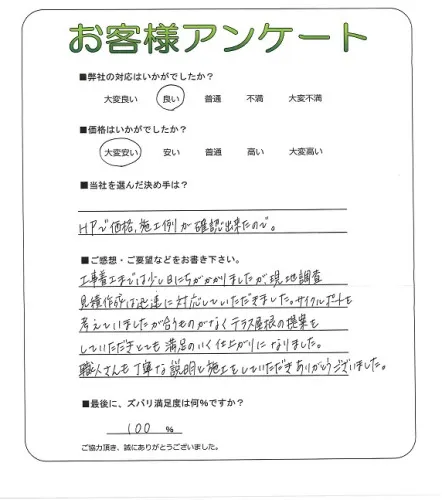 お客様アンケート
■弊社の対応はいかがでしたか?
大変良い 良い 普通 不満 大変不満
■価格はいかがでしたか?
大変安い 安い 普通 高い 大変高い
■当社を選んだ決め手は?
HPで価格,施工例が確認出来たので。
■ご感想・ご要望などをお書き下さい。
工事着工までは少し日にちがかかりましたが、現地調査
見積作成は迅速に対応していただきました。サイクルポートを
考えていましたが合うものがなくテラス屋根の提案を
していただきとても満足のいく仕上がりになりました。
職人さんも丁寧な説明と施工をしていただきありがとうございました。
■最後に、ズバリ満足度は何%ですか?
100 %
ご協力頂き、誠にありがとうございました。